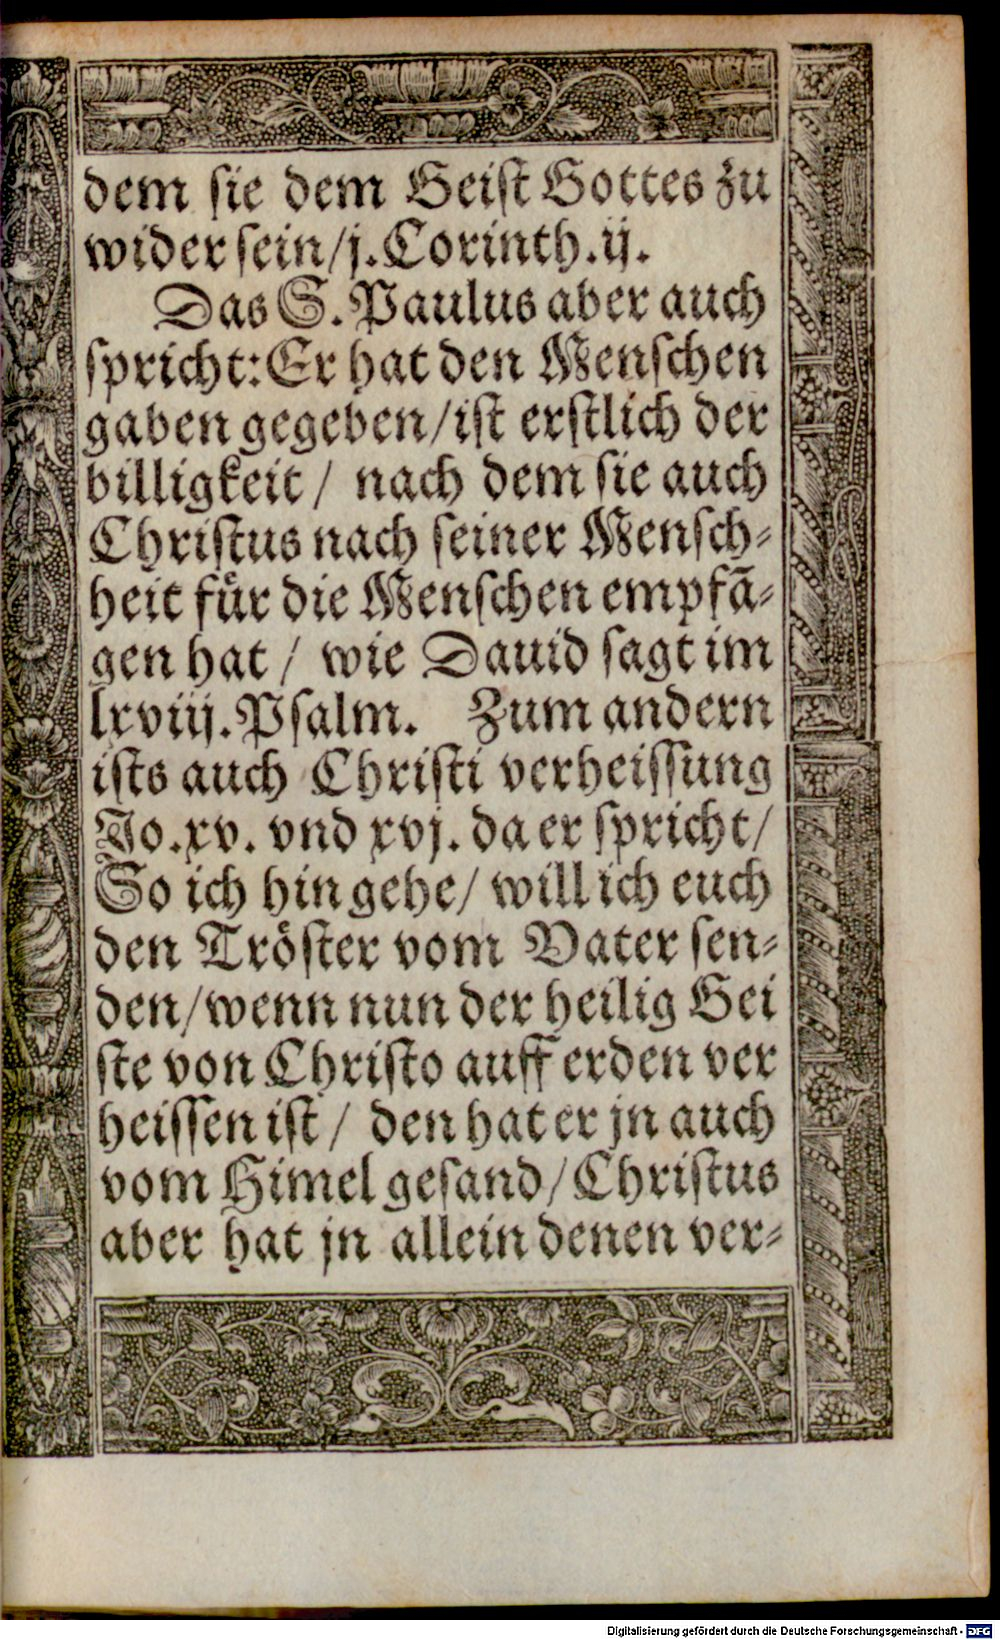 dem sie dem Geist Gottes zu
wider sein/j.Corinth.ij.
Das S. Paulus aber auch
spricht: Er hat den Menschen
gaben gegeben/ist erstlich der
billigkeit/ nach dem sie auch
Christus nach seiner Mensch-
heit fuͤr die Menschen empfā-
gen hat/ wie Dauid sagt im
lxviij.Psalm. Zum andern
ists auch Christi verheissung
Jo.xv. vnd xvj. da er spricht/
So ich hin gehe/ will ich euch
den Tröster vom Vater sen-
den/wenn nun der heilig Gei
ste von Christo auff erden ver
heissen ist/ den hat er jn auch
vom Himel gesand/Christus
aber hat jn allein denen ver-
Digitalisierung gefördert durch die Deutsche Forschungsgemeinschaft - DFG